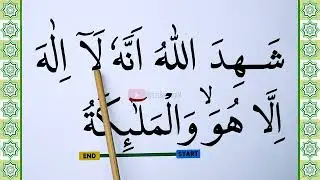 شَهِدَ اللّٰهُ اَنَّهٗ لَآ اِلٰهَ
اِلَّا هُوَۙ وَالْمَلٰٓئِكَةُ
END START